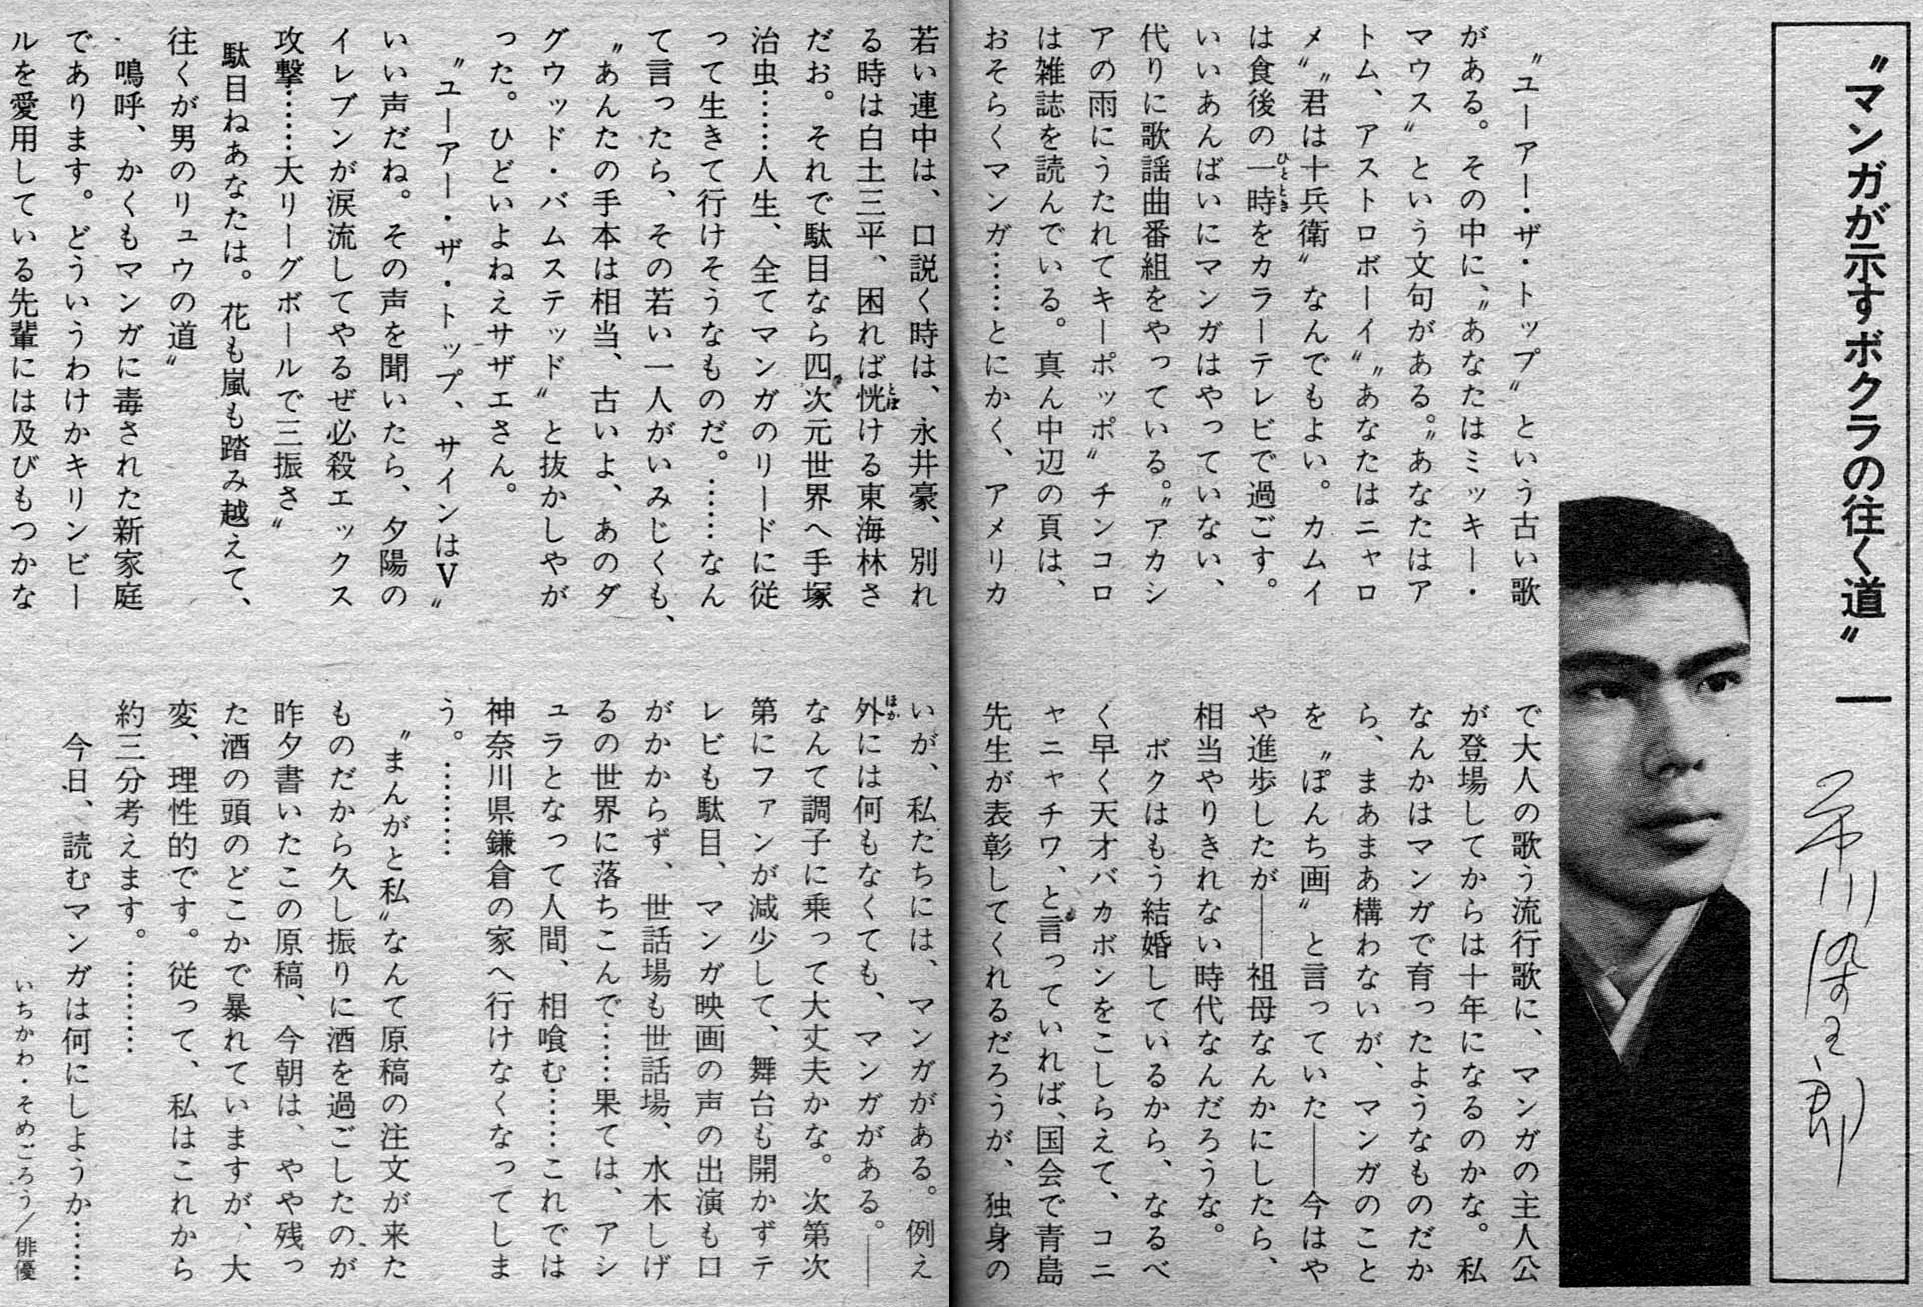 〝マンガが示すボクラの往く道〟―
市川染五郎
〝ユーアー・ザ・トップ〟という古い歌
がある。その中に、〝あなたはミッキー・
マウス〟という文句がある。〝あなたはア
トム、アストロボーイ〟〝あなたはニャロ
メ〟〝君は十兵衛〟なんでもよい。カムイ
は食後の一時をカラーテレビで過ごす。
ひととき
いいあんばいにマンガはやっていない、
代りに歌謡曲番組をやっている。〝アカシ
アの雨にうたれてキーポッポ〟チンコロ
は雑誌を読んでいる。真ん中辺の頁は、
おそらくマンガ……とにかく、アメリカ
で大人の歌う流行歌に、マンガの主人公
が登場してからは十年になるのかな。私
なんかはマンガで育ったようなものだか
ら、まあまあ構わないが、マンガのこと
を〝ぽんち画〟と言っていた――今はや
や進歩したが――祖母なんかにしたら、
相当やりきれない時代なんだろうな。
ボクはもう結婚しているから、なるべ
く早く天才バカボンをこしらえて、コニ
ャニャチワ、と言っていれば、国会で青島
先生が表彰してくれるだろうが、独身の
若い連中は、口説く時は、永井豪、別れ
る時は白土三平、困れば恍ける東海林さ
とぼ
だお。それで駄目なら四次元世界へ手塚
治虫……人生、全てマンガのリードに従
って生きて行けそうなものだ。……なん
て言ったら、その若い一人がいみじくも、
〝あんたの手本は相当、古いよ、あのダ
グウッド・バムステッド〟と抜かしやが
った。ひどいよねえサザエさん。
〝ユーアー・ザ・トップ、サインはV〟
いい声だね。その声を聞いたら、夕陽の
イレブンが涙流してやるぜ必殺エックス
攻撃……大リーグボールで三振さ〟
駄目ねあなたは。花も嵐も踏み越えて、
往くが男のリュウの道〟
鳴呼、かくもマンガに毒された新家庭
であります。どういうわけかキリンビー
ルを愛用している先輩には及びもつかな
いが、私たちには、マンガがある。例え
外には何もなくても、マンガがある。――
ほか
なんて調子に乗って大丈夫かな。次第次
第にファンが減少して、舞台も開かずテ
レビも駄目、マンガ映画の声の出演も口
がかからず、世話場も世話場、水木しげ
るの世界に落ちこんで……果ては、アシ
ュラとなって人間、相喰む……これでは
神奈川県鎌倉の家へ行けなくなってしま
う。………
〝まんがと私〟なんて原稿の注文が来た
ものだから久し振りに酒を過ごしたのが
昨夕書いたこの原稿、今朝は、やや残っ
た酒の頭のどこかで暴れていますが、大
変、理性的です。従って、私はこれから
約三分考えます。………
今日、読むマンガは何にしようか……
いちかわ・そめごろう／俳優